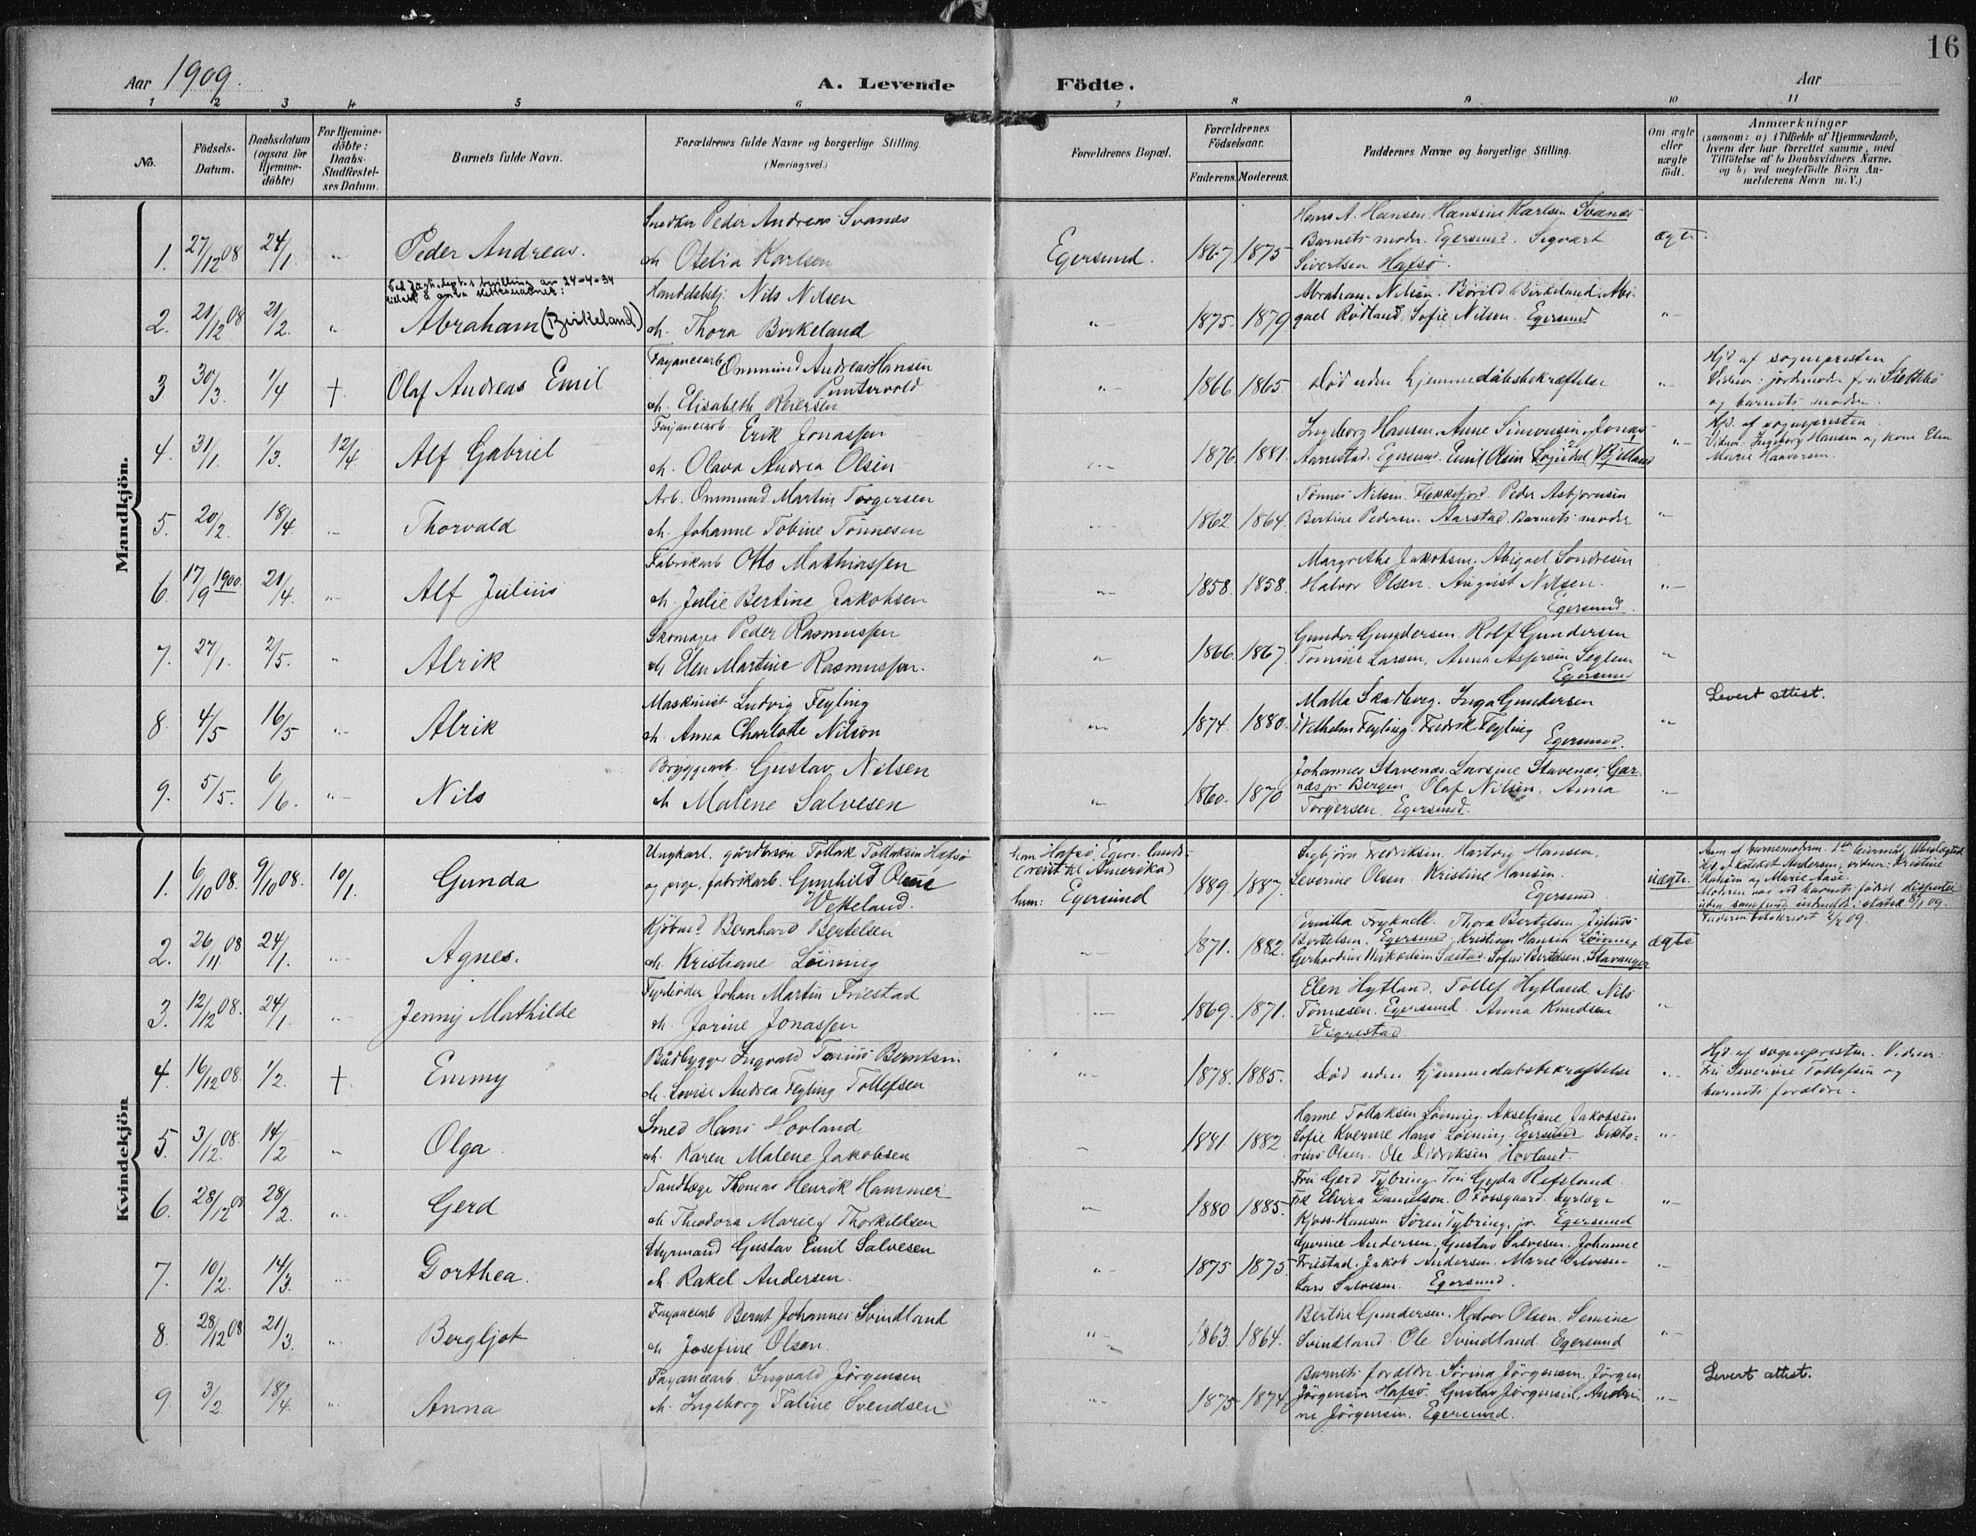 16
Aar 1909.
A. Levende Födte.
Aar
1 2 3 4 5 6 7 8 9 10 11
No.
Födsels-
Datum.
Daabsdatum
(ogsaa for
Hjemme-
döbte)
For Hjemme-
döbte:
Daabs-
Stadfæstel-
ses Datum.
Barnets fulde Navn.
Forældrenes fulde Navne og borgerlige Stilling
(Næringsvei.)
Forældrenes Bopæl.
Forældrenes
Födselsaar.
Faderens. Moderens.
Faddernes Navne og borgerlige Stilling.
Om ægte
eller
uægte
födt.
Anmærkninger
(saasom: a) i Tilfælde af Hjemmedaab,
hvem der har forrettet samme, med
Tilföielse af to Daabsvidners Navne,
og b) ved uegtefödte Börn An-
melderens Navn m. V.)
Mandkjön.
1. 27/12 08 24/1 „ Peder Andreas.
Snedker Peder Andreas Svanes
og Otelia Karlsen
Egersund. 1867 1875
Hans A. Hansen. Hansine Karlsen Svanes
Barnets moder. Egersund. Sigvart
Sivertsen Hafsö.
ægte.
2. 21/12 08 21/2. „
Ved Just.dept.s bevilling av 24-4-34
Abraham (Birkeland)
Handelsbtj. Nils Nilsen
og Thora Birkeland
„ 1875. 1879
Abraham Nilsen. Börild Birkeland. Abi-
gael Rödland. Sofie Nilsen. Egersund
„
3 30/3. 1/4 + Olaf Andreas Emil
Fayancearb. Ommund Andreas Hansen
Puntervold
og Elisabeth Reiersen
„ 1866 1865.
Död uden hjemmedåbsbekræftelse
„
Hjd. af sognepresten
Vidner: jordmoder fru Slettebö
og barnets moder.
4. 31/1. 1/3. 12/4 Alf Gabriel
Fayancearb. Erik Jonassen
og Olava Andrea Olsen
„ 1876. 1881.
Ingeborg Hansen. Anne Simonsen. Jonas
Aarrestad. Egersund. Emil Olsen Bjelland
„
Hjd. af sognepresten.
Vidner: Ingeborg Hansen og kone Elen
Marie Haaversen.
5. 20/2. 18/4. „ Thorvald
Arb. Ommund Martin Torgersen
og Johanne Tobine Tönnesen
„ 1862. 1864.
Tönnes Nilsen. Flekkefjord. Peder Asbjörnsen
Bertine Pedersen Aarstad. Barnets moder
„
6. 17/9 1900. 21/4. „ Alf Julius
Fabrikarb Otto Mathiassen
og Julie Bertine Jakobsen
„ 1858. 1858.
Margrethe Jakobsen. Abigael Sondresen
Halvor Olsen. August Nilsen.
Egersund.
„
7. 27/1. 2/5. „ Alrik
Skomager Peder Rasmussen
og Elen Martine Rasmussen.
„ 1866. 1867.
Gunder Gundersen. Rolf Gundersen
Tomine Larsen. Anna Aspersen Seglem
Egersund
„
8. 4/5 16/5 „ Alrik
Maskinist Ludvig Feyling
og Anna Charlotte Nilson
„ 1874. 1880.
Malla Skadberg. Inga Gundersen
Wilhelm Feyling. Fredrik Feyling
Egersund.
„
Levert attest.
9. 5/5. 6/6. „ Nils
Bryggearb. Gustav Nilsen
og Malene Salvesen
„ 1860. 1870
Johannes Stavenæs. Larsine Stavenæs. Gar-
næs pr. Bergen. Olaf Nilsen. Anna
Torgersen. Egersund.
„
Kvindekjön
1. 6/10 08. 9/10 08. 10/1. Gunda
Ungkarl. gårdbrson Tollak Tollaksen Hafsö
og pige, fabrikarb. Gunhild Olsine
Vetteland.
han Hafsö, Egers. lands.
(reist til Amerika)
hun: Egersund
1889. 1887.
Sigbjörn Fredriksen. Hartvig Hansen.
Severine Olsen. Kristine Hansen.
Egersund
uægte.
Anm. af barnemoderen. 1st leiermål.
Hjd af kateket Andersen, vidner: Kristine
Hansen og Marie Aase.
2. 26/11 08 24/1. „ Agnes.
Kjöbmd. Bernhard Bertelsen
og Kristiane Löining
„ 1871. 1882.
Pernilla Fryknell. Thora Bertelsen. Julius
Bertelsen. Egersund. Kristian Hansen Löining
Gerhardine Mikkelsen Sæstad. Sofus Bertelsen. Stavanger
ægte
3. 12/12 08. 24/1. „ Jenny Mathilde
Fyrböder Johan Martin Friestad
og Jorine Jonassen
„ 1869. 1871.
Elen Hytland. Tollef Hytland. Nils
Tönnesen. Egersund. Anna Knudsen
Vigrestad.
„
4. 16/12 08. 1/2. + Emmy
Bådbygger Ingvald Tonius Berntsen
og Lovise Andrea Feyling Tollefsen
„ 1878. 1885.
Död uden hjemmedabsbekræftelse
„
Hjd. af sognepresten. Vidner:
Fru Severine Tollefsen og
barnets forældre.
5. 3/12 08. 14/2 „ Olga
Smed Hans Hovland
og Karen Malene Jakobsen
„ 1881. 1882
Hanne Tollaksen Löining. Akseliane Jakobsen
Sofie Kverme. Hans Löining. Egersund.
Olsen. Ole Didriksen Hovland.
„
6. 28/12 08 28/2. „ Gerd
Tandlæge Thomas Henrik Hammer
og Theodora Marie f. Thorkildsen
„ 1880 1885.
Fru Gerd Tybring. Fru Gyda Refsland
Frk Elvira Danielson. O. Fossgaard. Dyrlæge
Kjoss-Hansen. Sören Tybring, jr. Egersund
„
7. 10/2. 14/3. „ Dorthea.
Styrmand Gustav Emil Salvesen
og Rakel Andersen.
„ 1875 1875.
Gurine Andersen. Gustav Salvesen. Johanne
Friestad. Jakob Andersen. Marie Salvesen
Lars Salvesen. Egersund.
„
8 28/12 08 21/3. „ Bergljot
Fayancearb Bernt Johannes Svindland
og Josefine Olsen.
„ 1863. 1864.
Bertine Gundersen. Halvor Olsen. Semine
Svindland. Ole Svindland. Egersund
„
9. 3/2. 18/4. „ Anna
Fayancearb. Ingvald Jörgensen
og Ingeborg Taline Svendsen
„ 1875 1874
Barnets forældre. Sörina Jörgensen. Jörgen
Jörgensen Hafsö. Gustav Jörgensen. Andri-
ne Jörgensen. Egersund.
„
Levert attest.